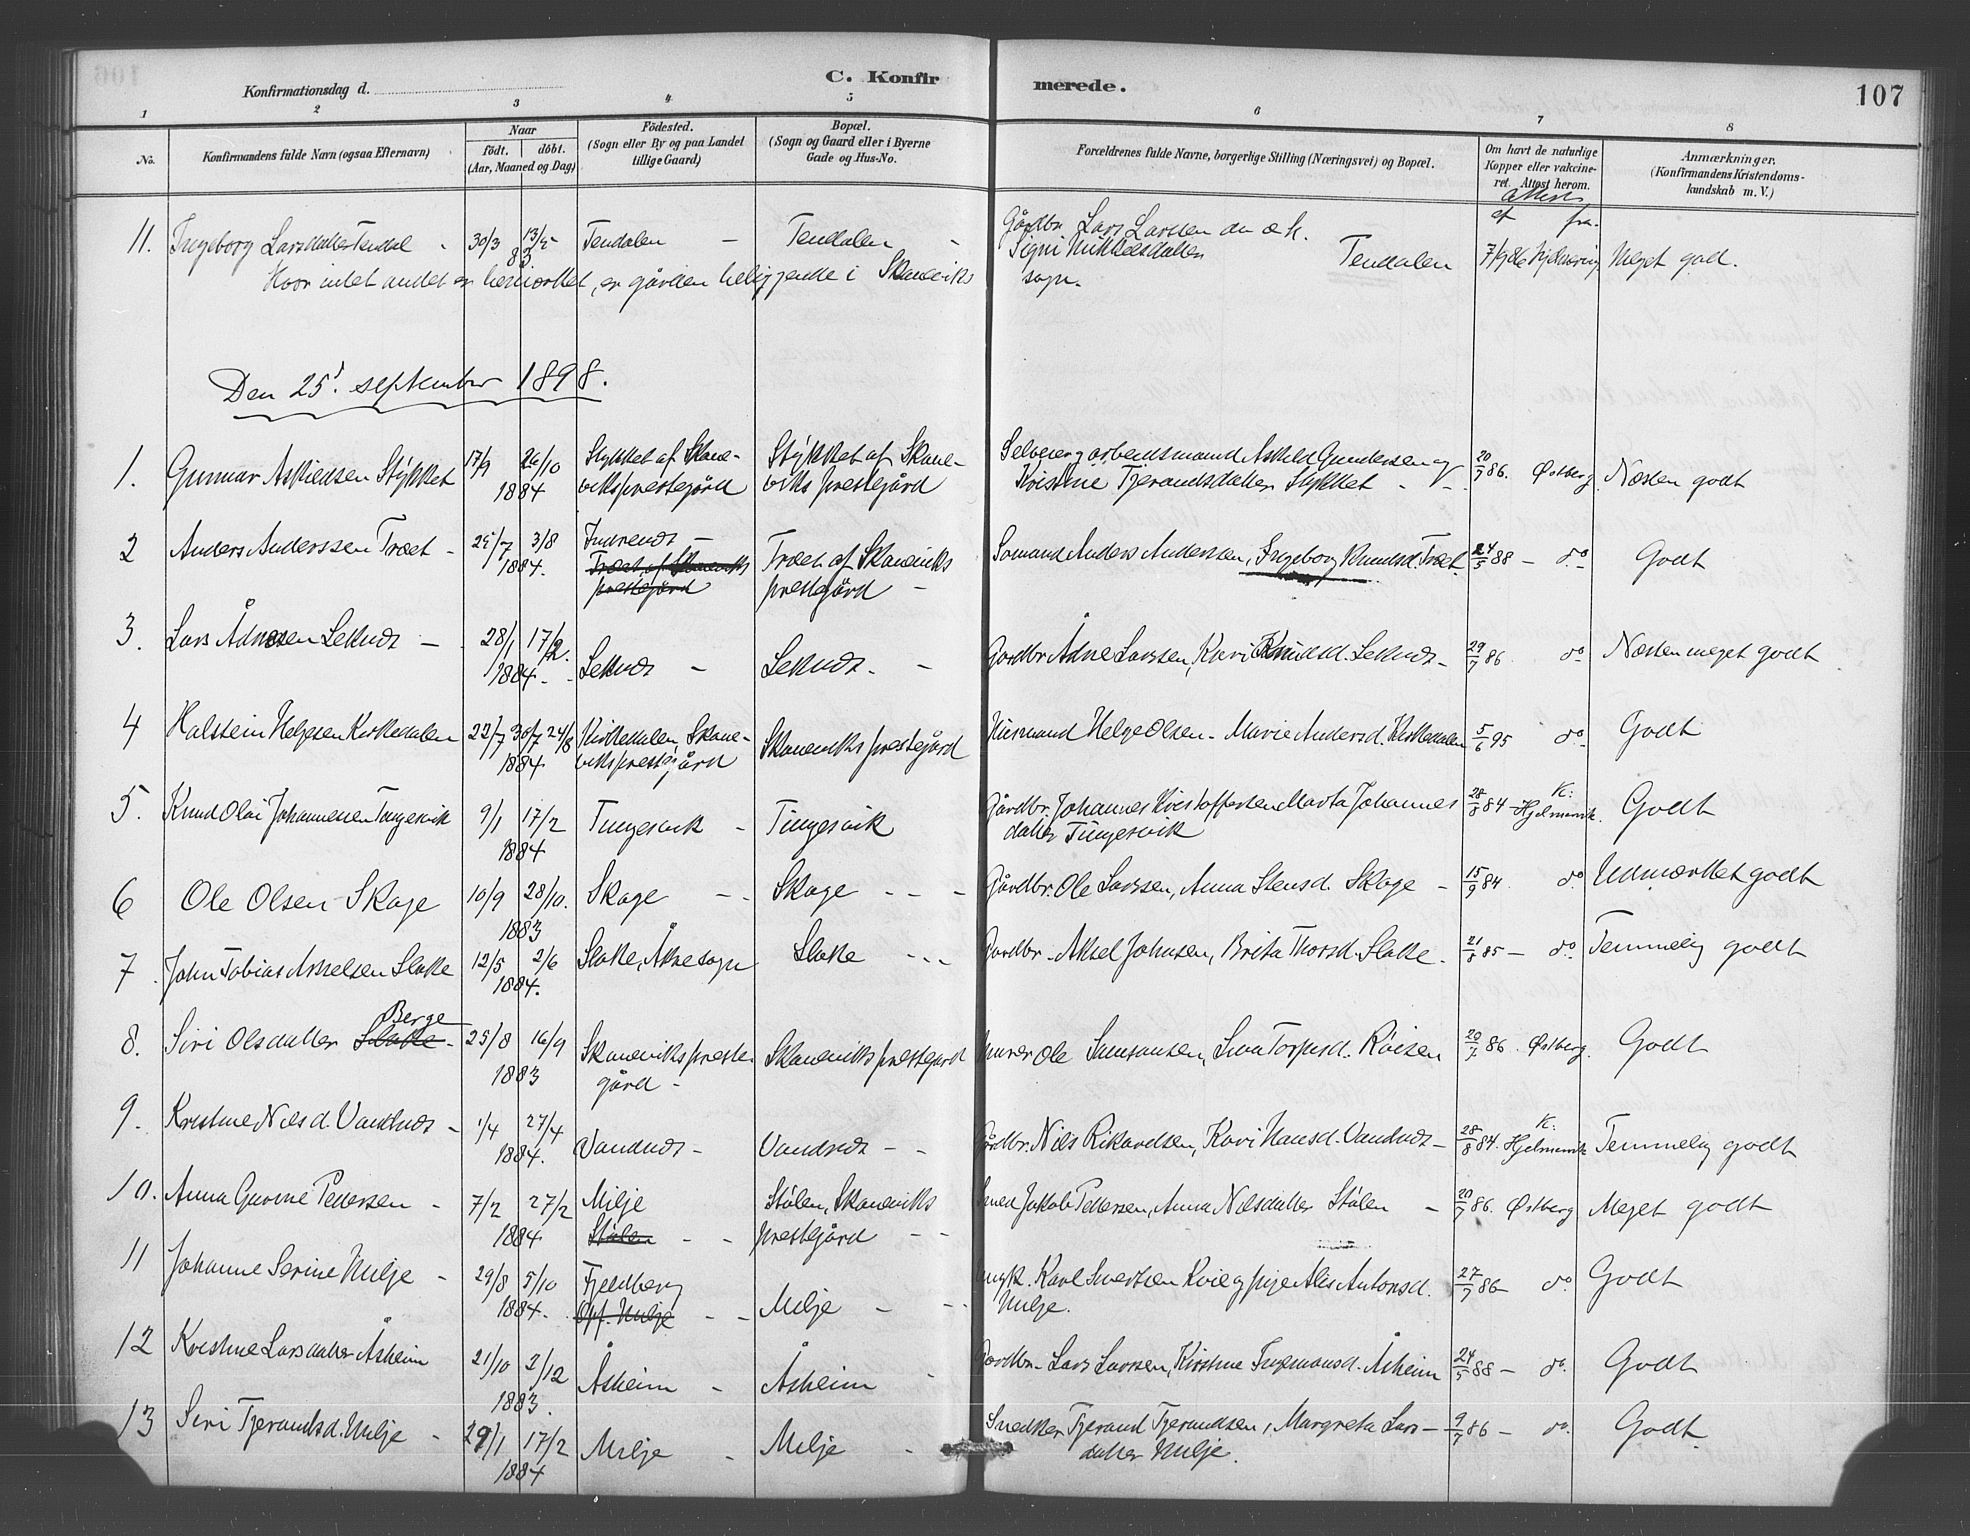 107
C. Konfirmerede.
Konfirmationsdag d.
1 2 3 4 5 6 7 8
No.
Konfirmandens fulde Navn (ogsaa Efternavn)
Naar
födt. döbt.
(Aar, Maaned og Dag)
Födested.
(Sogn eller By og paa Landet
tillige Gaard)
Bopæl.
(Sogn og Gaard eller i Byerne
Gade og Hus-No.
Forældrenes fulde Navne, borgerlige Stilling (Næringsvei) og Bopæl.
Om havt de naturlige
Kopper eller vakcine-
ret. Attest herom.
Anmærkninger.
(Konfirmandens Kristendoms-
kundskab m. V.)
Attest
af fra.
11. Ingeborg Larsdatter Tendal - 30/3 13/5 83 Tendalen - Tendalen - Gårdbr. Lars Larsen
Signi Mikkelsdatter Tendalen 7/9 86 Meget god.
Hvor intet andet er bemærket, er gården beliggende i Skaneviks
sogn.
Den 25d. september 1898.
1. Gunnar Askiedsen Stykket 17/9 26/10 1884 Stykket af Skane-
viksprestegård Stykket af Skane-
viks prestegård Selveier og arbeidsmand Askild Gundersen og
Kristine Tjerandsdatter Stykket - - 20/7 86. Østberg. Næsten godt
2 Anders Anderssen Træet - 25/7 3/8 1884. Indrenes -
Træet af Skaneviks
prestegård Træet af Skaneviks
prestegård - Sømand Anders Andersen, Ingeborg Knudsd. Træet. 24/5 88 - do Godt
3. Lars Ådnesen Leknes - 28/1 17/2. 1884. - Leknes - Leknes. - Gårdbr. Ådne Larssen, Kari Knudsd. Leknes - 29/7 86 do Næsten meget godt
4 Halstein Helgesen Kirkedalen 22/7 30/7 24/8 1884 Kirkedalen, Skane-
viksprestegård Skaneviks prestegård Husmand Helge Olsen - Marie Andersd. Kirkedalen 5/6 95 do Godt
5. Knud Olai Johannesen Tungesvik 9/1 17/2 1884 Tungesvik - Tungesvik Gårdbr. Johannes Kristoffersen Marta Johannes
datter Tungesvik 28/8 84 - K. Hjelmervik. Godt
6 Ole Olsen Skage 10/9 28/10. 1883 Skage - - Skage - - - Gårdbr. Ole Larssen, Anna Stensd. Skage - 15/9 84. do. Udmærket godt
7. John Tobias Akselsen Slakke 12/5 2/6 1884. Slakke, Åkre sogn Slakke - - - Gårdbr. Aksel Johnsen, Brita Thorsd. Slakke - 21/8 85 - do. Temmelig godt
8. Siri Olsdatter Slakke - Berge 25/8 16/9 1883 Skaneviks preste
gård - Skaneviks prestegård Murer Ole Samsonsen, Siva Torpsd. Röisen 20/7 86. Østberg. Godt
9. Kristine Nilsd. Vandnes - 1/4 27/4 1884. Vandnes - Vandnes - - Gårdbr. Nils Rikardsen, Kari Hansd. Vandnes - 28/8 84. K. Hjelmervik Temmelig godt
10. Anna Gurine Pedersen - 7/2 27/2 1884 Milje
Stölen - - Stölen, Skaneviks
prestegård - - Smed Jakob Pedersen, Anna Nilsdatter Stölen - 20/7 86. Østberg Meget godt
11 Johanne Serine Milje - 29/8 5/10 1884. Fjeldberg
Opf. Milje - - Milje - - - Ungk. Karl Sivertsen Kvie og pige Alis Antonsd.
Milje. 27/7 86 - do. Godt
12 Kristine Larsdatter Åsheim 21/10 2/12 1883. Åsheim - Åsheim - Gårdbr. Lars Larssen, Kirstine Ingemansd. Åsheim 24/5 88 - do. Godt
13 Siri Tjerandsd. Milje - 29/1 17/2 1884 Milje - Milje - Snedker Tjerand Tjerandsen, Margreta Lars-
datter Milje. 9/7 86 - do. Godt